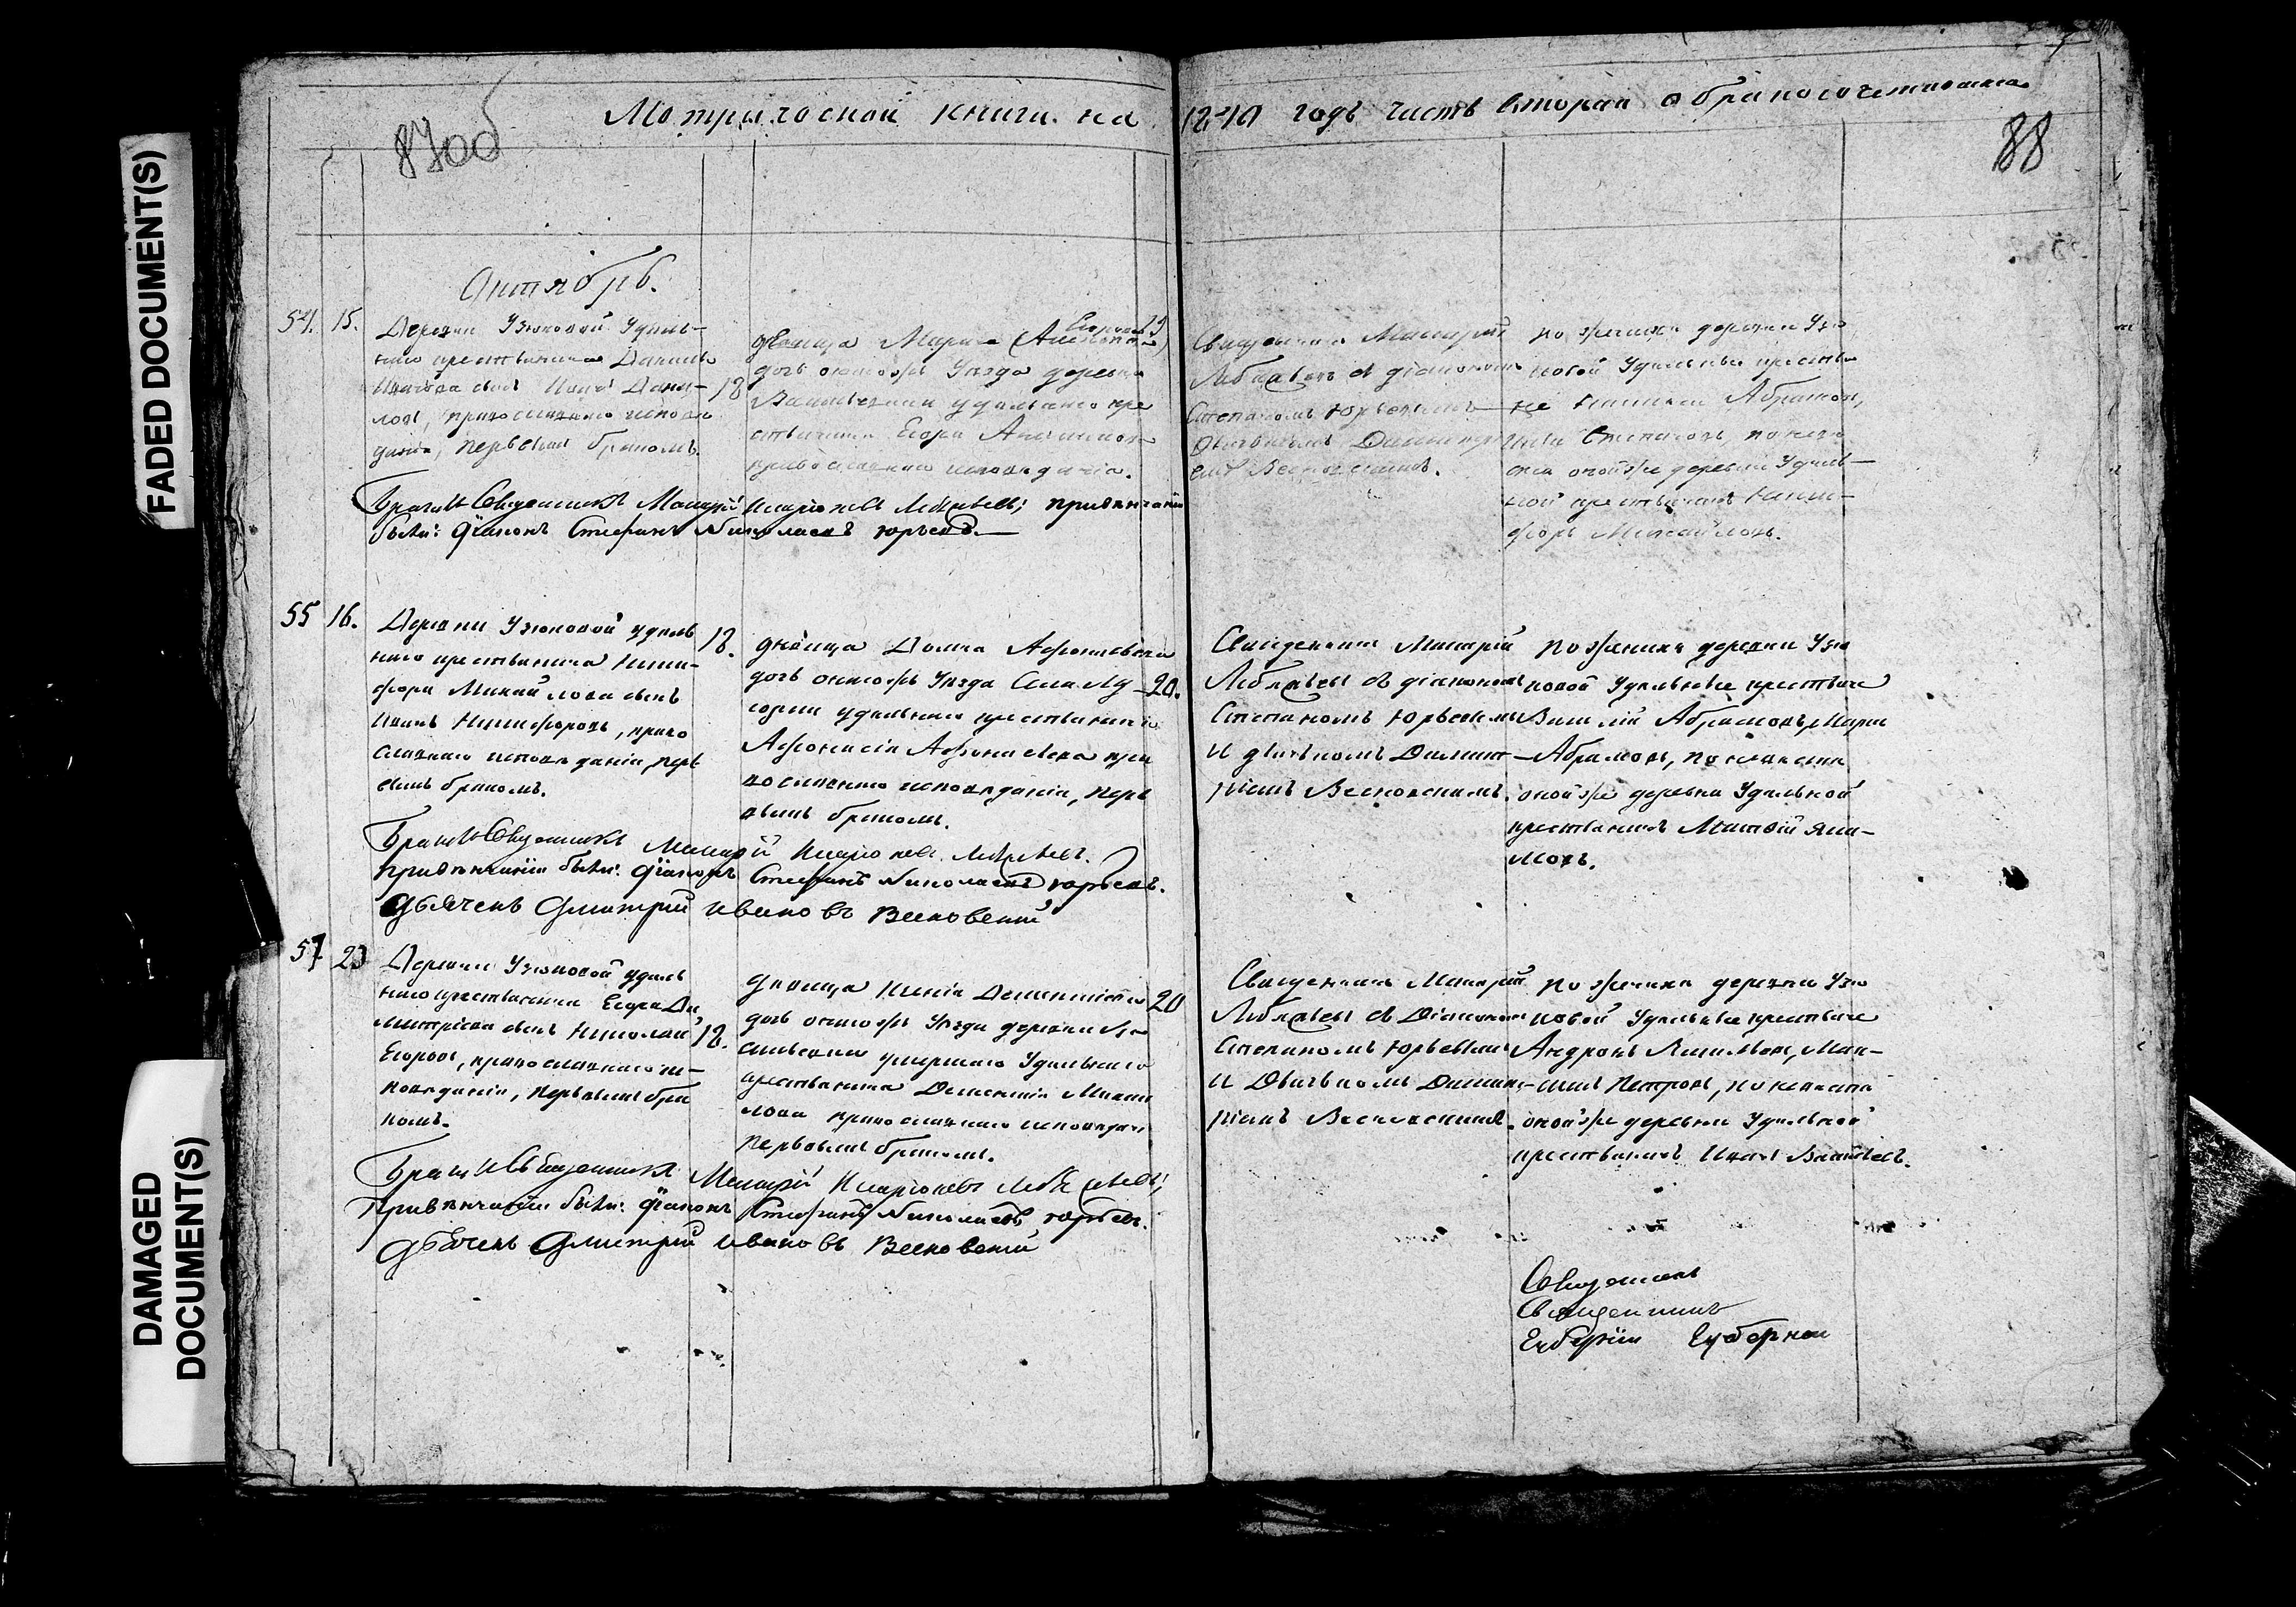 FADED DOCUMENT(S)
DAMAGED
DOCUMENT(S)
87об
88
Метрической книги на 1840 годъ часть вторая о бракосочетавшихся
Октябрь.
54. 15.
Деревни Узюковой Удѣль-
наго крестьянина Данила
Иванова сынъ Иванъ Дани-
ловъ, православнаго исповѣ
данія, первымъ бракомъ.
18
дѣвица Марья
дочь онагожъ Уѣзда деревни
Васильевки удѣльнаго кре
стьянина Егора
православнаго исповѣданія.
19
Священникъ Макарій
Лебедевъ съ діакономъ
Степаномъ Юрьевымъ
Дьячкомъ Димитрі
емъ Весновскимъ.
по женихѣ деревни Узю
ковой Удѣльные крестья
не Абрамовъ,
Степановъ, по невѣ
стѣ оной же деревни Удѣль-
ной крестьянинъ Ники-
форъ Михайловъ.
Бракъ Священникъ Макарій Иларіоновъ Лебедевъ; при вѣнчаніи
были: Діаконъ Стефанъ Николаевъ Юрьевъ.
55 16.
Деревни Узюковой удѣль
наго крестьянина Ники-
фора Михайлова сынъ
Иванъ Никифоровъ, право
славнаго исповѣданія, перв
ымъ бракомъ.
18.
дѣвица Домна Афонасьева
дочь онагожъ Уѣзда Села
удѣльнаго крестьянина
Афонасія Афонасьева пра
вославнаго исповѣданія, перв
вымъ бракомъ.
20.
Священникъ Макарій
Лебедевъ съ діакономъ
Степаномъ Юрьевымъ
и дьячкомъ Димит-
ріемъ Весновскимъ.
по женихѣ деревни Узю
ковой Удѣльные крестьяне
Василій Абрамовъ, Марк
Абрамовъ, по невѣстѣ
оной же деревни Удѣльной
крестьянинъ Матвѣй Яки-
мовъ.
Бракъ Священникъ Макарій Иларіоновъ Лебедевъ.
При вѣнчаніи были: Діаконъ Стефанъ Николаевъ Юрьевъ.
Дьячекъ Дмитрий Ивановъ Весновский
57 23
Деревни Узюковой удѣль
наго крестьянина Егора Ди
митріева сынъ Николай
Егоровъ, православнаго ис-
повѣданія, первымъ бра
комъ.
18.
дѣвица Ксенія Дементіева
дочь онагожъ Уѣзда деревни Ва
сильевки умершаго Удѣльнаго
крестьянина Дементія Михай
лова православнаго исповѣдані
первымъ бракомъ.
20
Священникъ Макарій
Лебедевъ съ Діакономъ
Степаномъ Юрьевымъ
и Дьячкомъ Димит-
ріемъ Весновскимъ.
по женихѣ деревни Узю
ковой Удѣльные крестьяне
Андронъ Васильевъ, Мак-
симъ Петровъ, по невѣстѣ
оной же деревни Удѣльной
крестьянинъ Иванъ Васильевъ.
Бракъ Священникъ Макарій Иларіоновъ Лебедевъ;
При вѣнчаніи были: Діаконъ Стефанъ Николаевъ Юрьевъ.
Дьячекъ Дмитрий Ивановъ Весновский
Священникъ